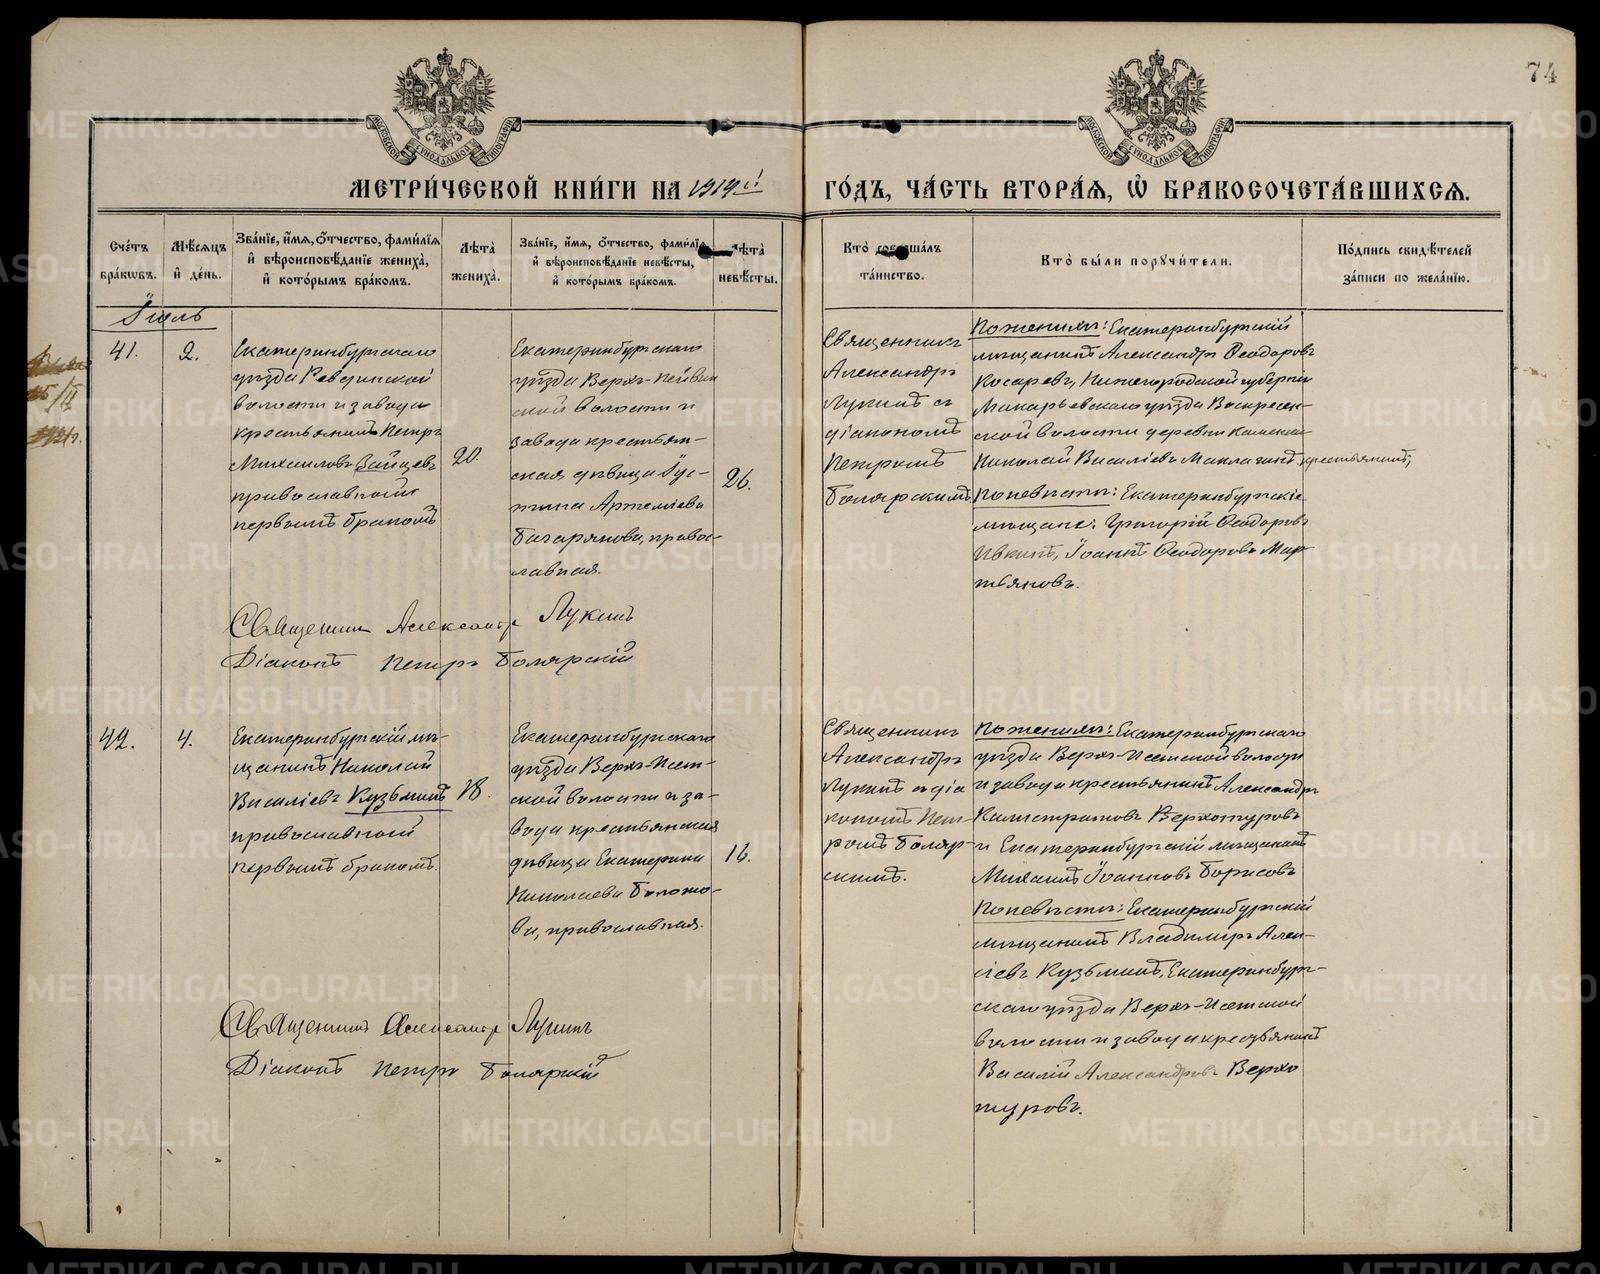 74
МЕТРИЧЕСКОЙ КНИГИ НА 1919й ГОДЪ, ЧАСТЬ ВТОРАЯ, Ѡ БРАКОСОЧЕТАВШИХСЯ.
Счетъ браковъ.
Мѣсяцъ и день.
Званіе, имя, отчество, фамилія и вѣроисповѣданіе жениха, и которымъ бракомъ.
Лѣта жениха.
Званіе, имя, отчество, фамилія и вѣроисповѣданіе невѣсты, и которымъ бракомъ.
Лѣта невѣсты.
Кто совершалъ таинство.
Кто были поручители.
Подпись свидѣтелей записи по желанію.
Іюль
41.
2.
Екатеринбургскаго
уѣзда Ревдинской
волости и завода
крестьянинъ Петръ
Михаиловъ Зайцевъ
православный
первымъ бракомъ
20.
Екатеринбургскаго
уѣзда Верхъ-Нейвин
ской волости и
завода крестьян-
ская дѣвица Іус-
тина Артеміева
Бачарянова, право-
славная.
26.
Священникъ
Александръ
Лукинъ с
діакономъ
Петромъ
Болярскимъ
По женихѣ: Екатеринбургскій
мѣщанинъ Александръ Ѳеодоровъ
Косаревъ, Нижегородской губерніи
Макарьевскаго уѣзда Воскресен-
ской волости деревни
Николай Василіевъ крестьянинъ,
По невѣстѣ: Екатеринбургскіе
мѣщане: Григорій Ѳеодоровъ
Ивкинъ, Іоаннъ Ѳеодоровъ Мар
тьяновъ.
Священникъ Александръ Лукинъ
Діаконъ Петръ Болярскій
42.
4.
Екатеринбургскій мѣ-
щанинъ Николай
Василіевъ Кузьминъ
православный
первымъ бракомъ.
18.
Екатеринбургскаго
уѣзда Верхъ-Исет-
ской волости и за-
вода крестьянская
дѣвица Екатерина
Николаева Болото-
ва, православная.
16.
Священникъ
Александръ
Лукинъ с діа
кономъ Пет-
ромъ Боляр-
скимъ.
По женихѣ: Екатеринбургскаго
уѣзда Верхъ-Исетской волости
и завода крестьянинъ Александръ
Калистратовъ Верхотуровъ
и Екатеринбургскій мѣщанинъ
Михаилъ Іоанновъ Борисовъ
По невѣстѣ: Екатеринбургскій
мѣщанинъ Владимиръ Алек-
сіевъ Кузьминъ, Екатеринбург-
скаго уѣзда Верхъ-Исетской
волости и завода крестьянинъ
Василій Александровъ Верхо
туровъ.
Священникъ Александръ Лукинъ
Діаконъ Петръ Болярскій
METRIKI.GASO-URAL.RU